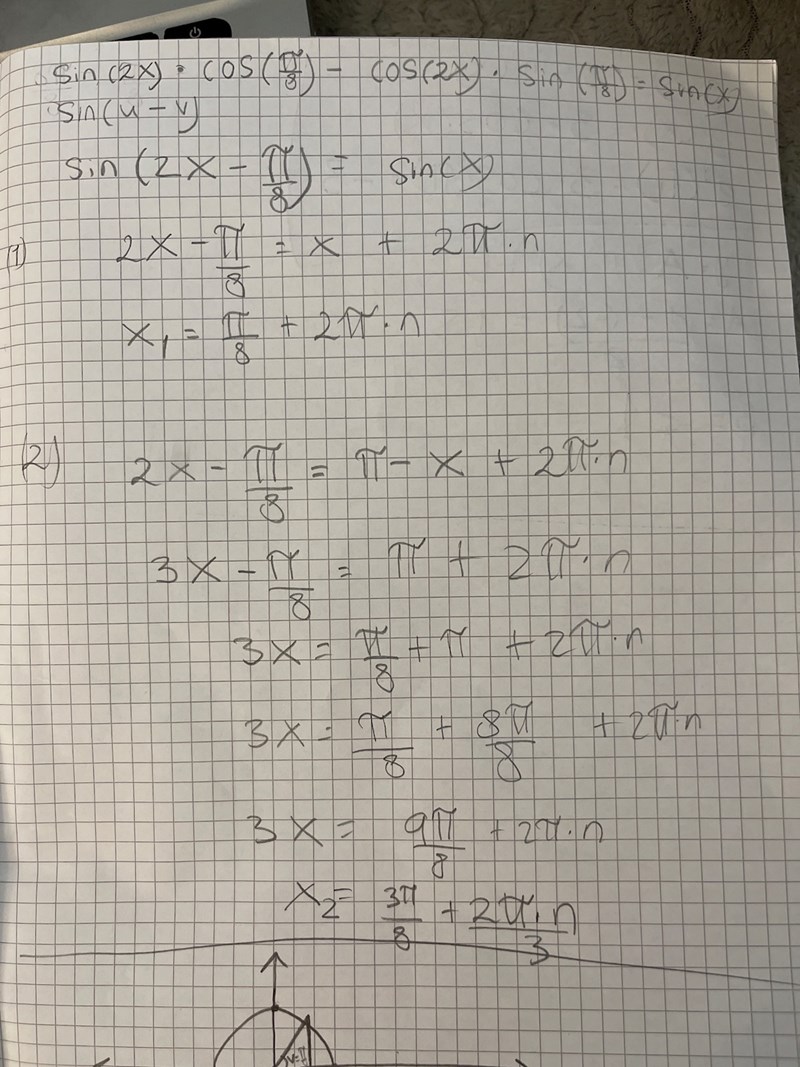 sin(2x) · cos(π/8) - cos(2x) · sin(π/8) = sin(x)
sin(u - v)
sin(2x - π/8) = sin(x)
(1) 2x - π/8 = x + 2π·n
x₁ = π/8 + 2π·n
(2) 2x - π/8 = π - x + 2π·n
3x - π/8 = π + 2π·n
3x = π/8 + π + 2π·n
3x = π/8 + 8π/8 + 2π·n
3x = 9π/8 + 2π·n
x₂ = 3π/8 + 2π·n/3